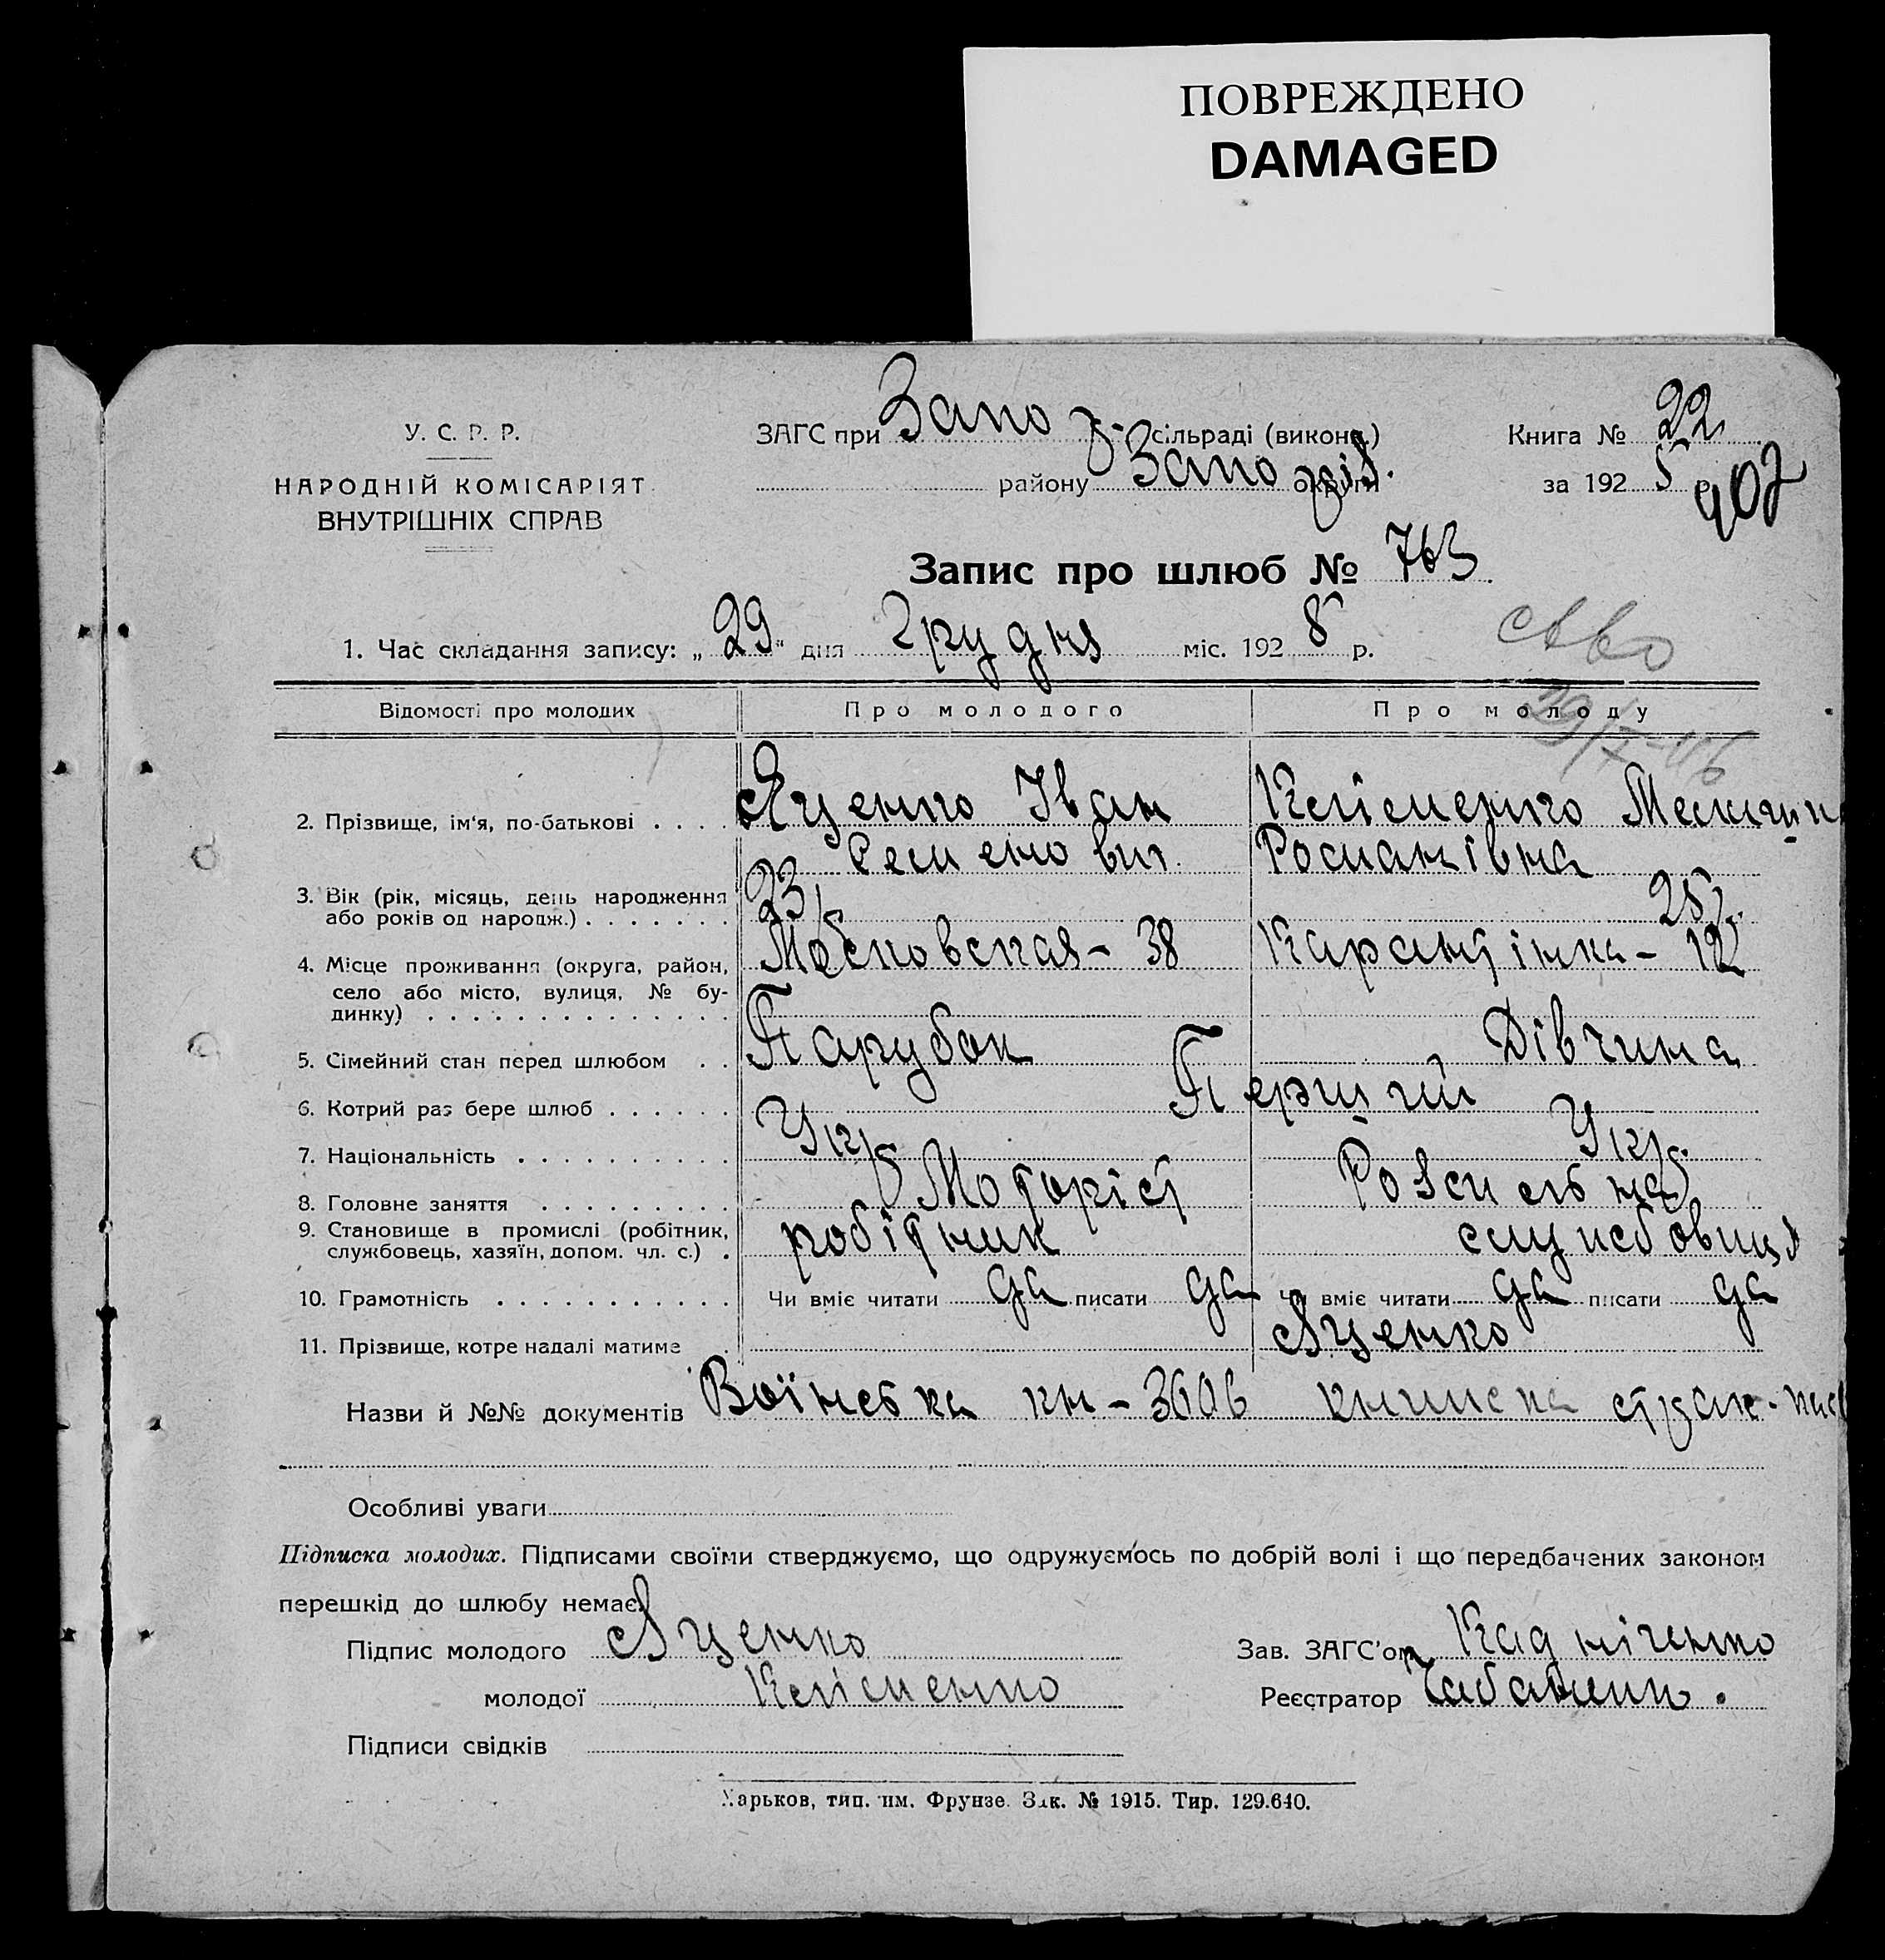 ПОВРЕЖДЕНО
DAMAGED
У. С. Р. Р.
НАРОДНІЙ КОМІСАРІЯТ
ВНУТРІШНІХ СПРАВ
ЗАГС при Запоріз. сільраді (виконк.)
району Запоріз. округи
Книга № 22
за 1925 р.
402
Запис про шлюб № 763
1. Час складання запису: „29" дня Грудня міс. 1925 р.
Відомості про молодих
Про молодого
Про молоду
2. Прізвище, ім'я, по-батькові . . . . Яценко Іван
Семенович
Клименко
Романівна
3. Вік (рік, місяць, день народження
або років од народж.) . . . . . . . 23
25 р.
4. Місце проживання (округа, район,
село або місто, вулиця, № бу-
динку) . . . . . . . . . . . . . . Московская - 38
Карантінна - 12
5. Сімейний стан перед шлюбом . . Парубок
Дівчина
6. Котрий раз бере шлюб . . . . . . Перший
7. Національність . . . . . . . . . . Укр.
Укр.
8. Головне заняття . . . . . . . . . Моторіст
Розсильна
9. Становище в промислі (робітник,
службовець, хазяїн, допом. чл. с.) . робітник
службовиця
10. Грамотність . . . . . . . . . . . Чи вміє читати да писати да
Чи вміє читати да писати да
11. Прізвище, котре надалі матиме .
Яценко
Назви й №№ документів Воїнська кн - 3606 книжка страх.
Особливі уваги
Підписка молодих. Підписами своїми стверджуємо, що одружуємось по добрій волі і що передбачених законом
перешкід до шлюбу немає.
Підпис молодого Яценко
молодої Клименко
Зав. ЗАГС'ом Кадніченко
Реєстратор
Підписи свідків
Харьков, тип. им. Фрунзе. Зак. № 1915. Тир. 129.640.